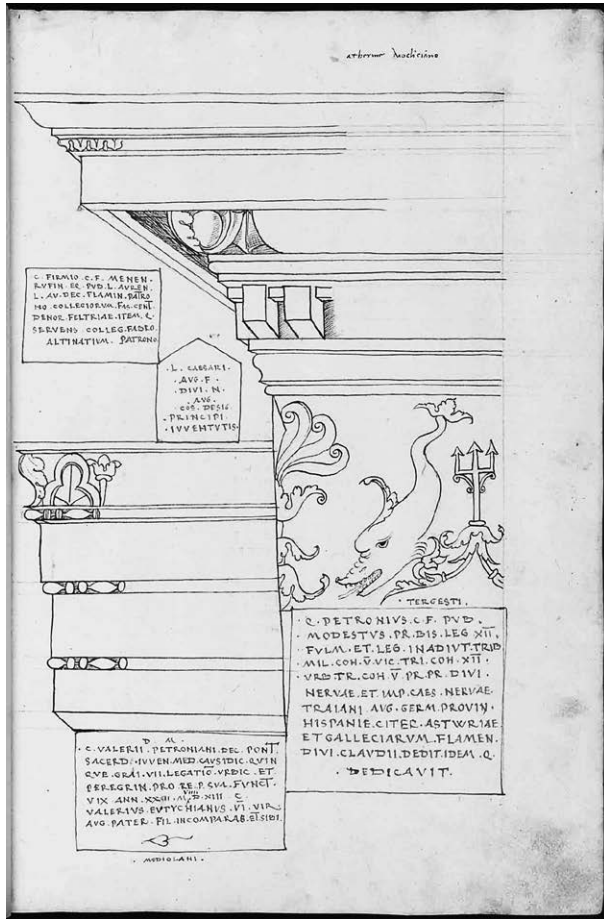 a therme diocliciane
C. FIRMIO. C. F. MENEN.
RVFIN. EQ. PVB. L. AVREN.
L. AV. DEC. FLAMIN. PATRO
NO. COLLEGIORVM. FAB. CENT.
DENOR. FELTRIAE. ITEM. Q.
SERVENS. COLLEG. FABRO.
ALTINATIVM. PATRONO
· L. CAESARI.
· AVG. F ·
· DIVI. N ·
· AVG.
COS. DESIG.
· PRINCIPI.
· IVVENTVTIS.
· TERGESTI.
· Q. PETRONIVS. C. F. PVB.
MODESTVS. PR. BIS. LEG XII.
FVLM. ET. LEG. I NADIVT. TRIB
MIL. COH. V. VIC. TRI. COH. XII ·
VRB TR. COH. V. PR. PR. DIVI.
NERVAE. ET. IMP. CAES. NERVAE.
TRAIANI. AVG. GERM. PROVIN.
HISPANIE. CITER. ASTVRIAE
ET GALLECIARVM. FLAMEN.
DIVI. CLAVDII. DEDIT. IDEM. Q.
· DEDICAVIT.
D. M.
· C. VALERII. PETRONIANI. DEC. PONT
SACERD. IVVEN. MED. CAVSIDIC. QVIN
QVE. GRAT. VII. LEGATIO. VRBIC. ET
PEREGRIN. PRO. RE. P. SVA. FVNCT.
VIX ANN. XXIII. D. XIII C.
VALERIVS. EVTYCHIANVS. VI. VIR
AVG. PATER. FIL. INCOMPARAB. ET SIBI.
MEDIOLANI.